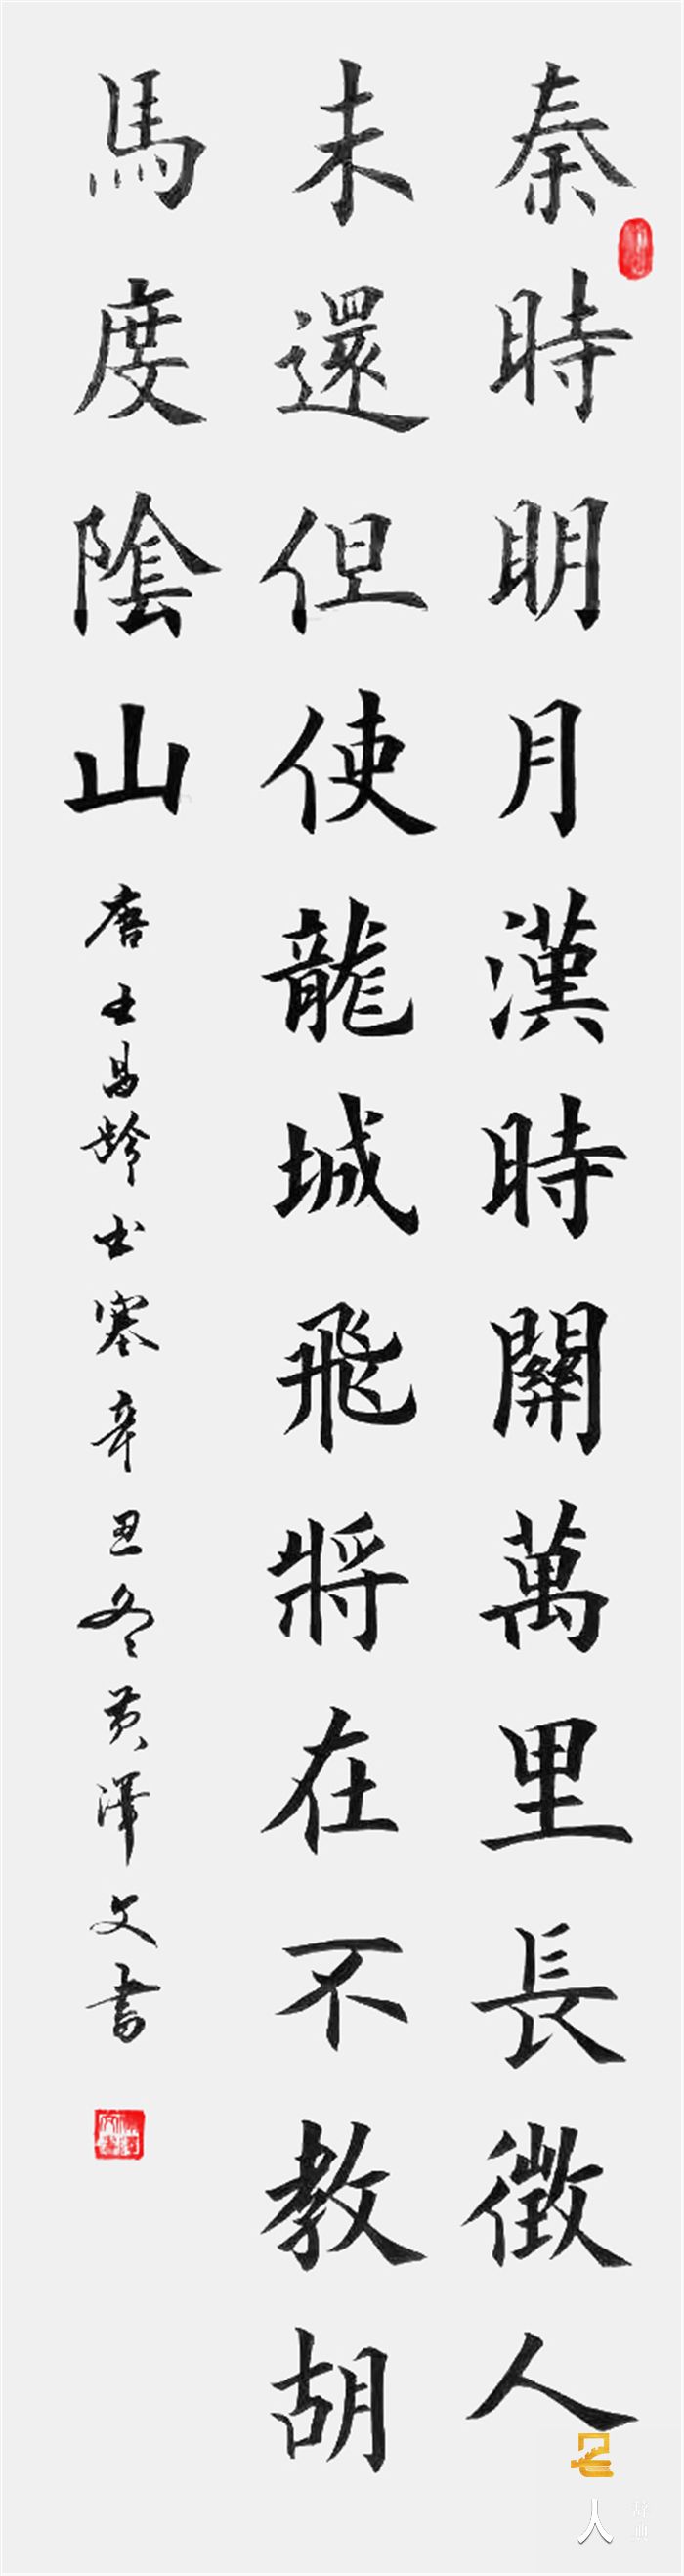 秦時明月漢時關萬里長徵人
未還但使龍城飛將在不教胡
馬度陰山
唐王昌齡出塞辛丑冬黃澤文書
人